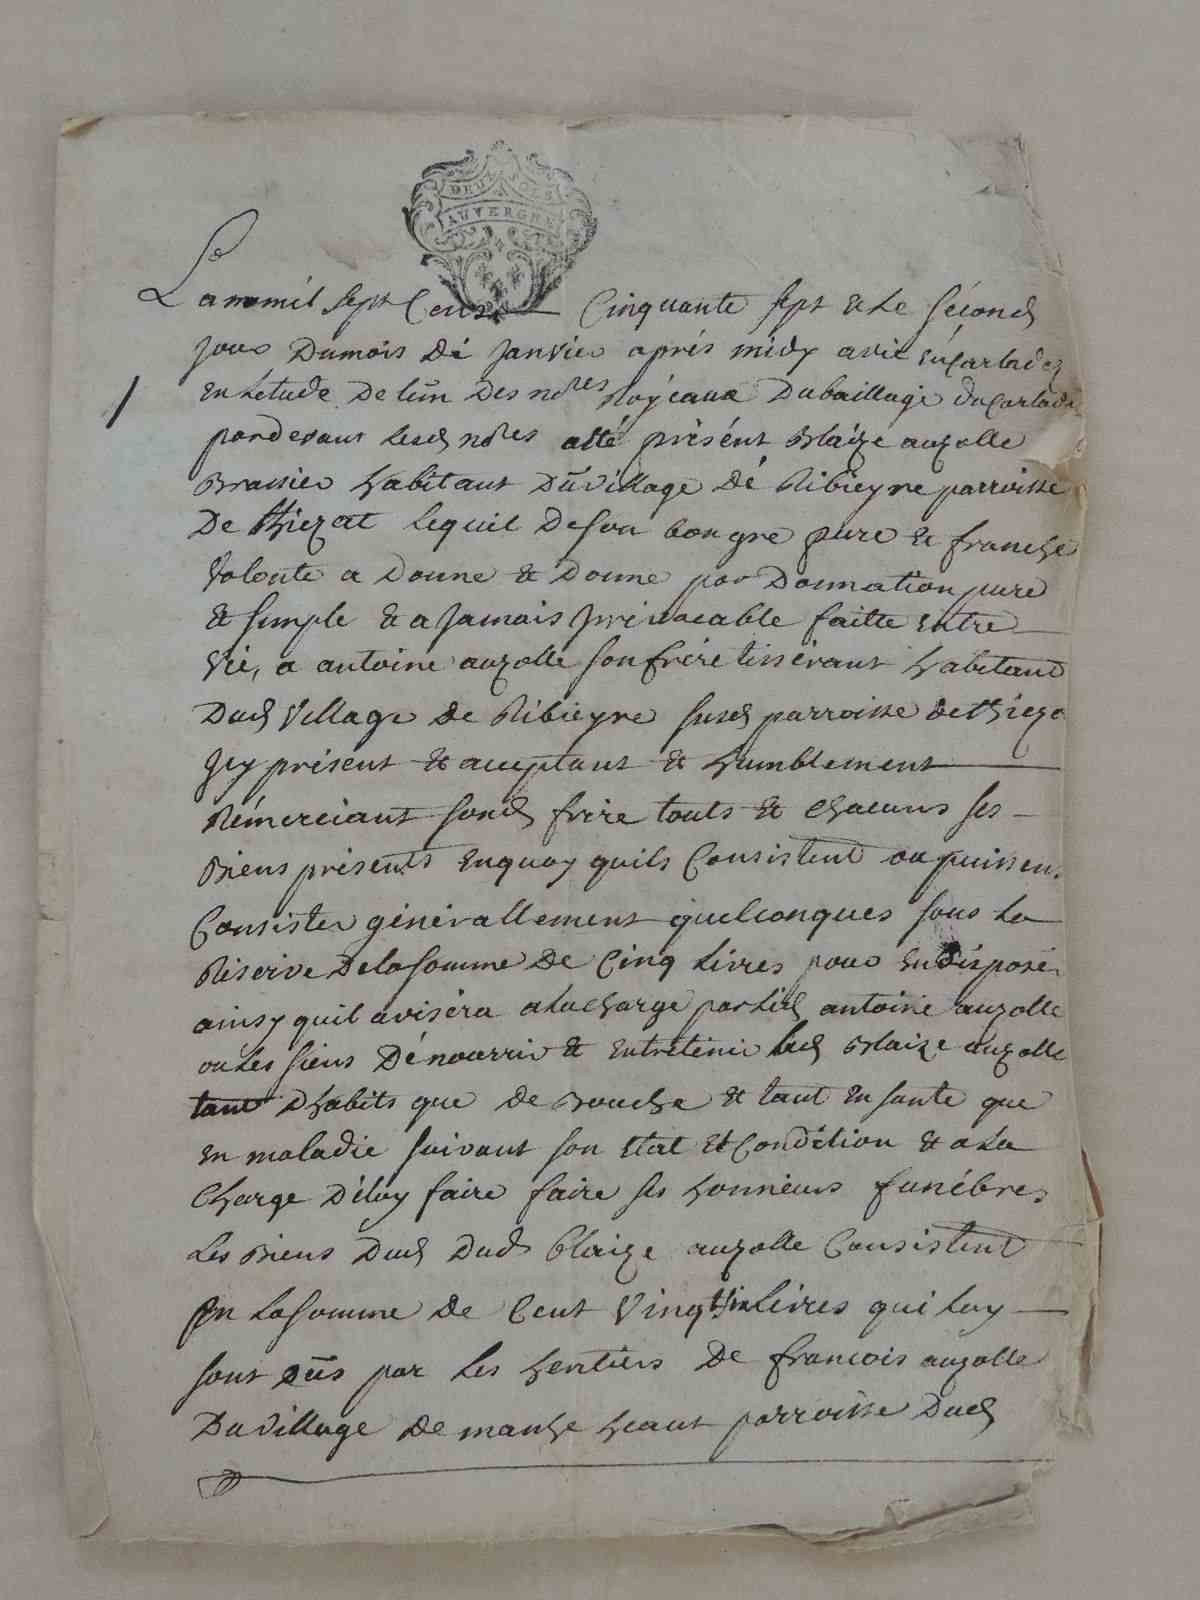 DEUX SOLS
AUVERGNE
Lan mil sept Cens Cinquante sept & Le sécond
jour Dumois dé janvier aprés midy a vic en Carladez
en Letude De lun Des nores Royeaux Du baillage du Carladez
pardevant Lesd nores a été présént Blaize auzolle
Brassier habitant Du village dé Ribieyre parroisse
De thiezat lequel De son bon gre pure & franche
volonte a donne & Donne par Donnation pure
& simple & a jamais jrrevocable faitte entre
vif, a antoine auzolle son frere tisserant habitant
Dud village de Ribieyre susd parroisse de thieza
jcy présent & acceptant & humblement
Rémerciant sond frere touts & chacuns ses
Biens présents en quoy quils Consistent ou puissent
Consister génerallement quelconques sous La
Réserve De la somme De Cinq Livres pour en disposer
ainsy quil avisera a la charge par Led antoine auzolle
ou Les siens Dé nourrir & entretenir Led Blaize auzolle
tant dhabits que de Bouche & tant en sante que
en maladie suivant son etat & Condition & a La
Charge Déluy faire faire ses honneurs funébres
Les Biens Dud Dud blaize auzolle Consistent
En La somme de Cent Vingt Livres qui Luy
sont dûs par Les heritiers De francois auzolle
Du village de manhe haut parroisse Dud